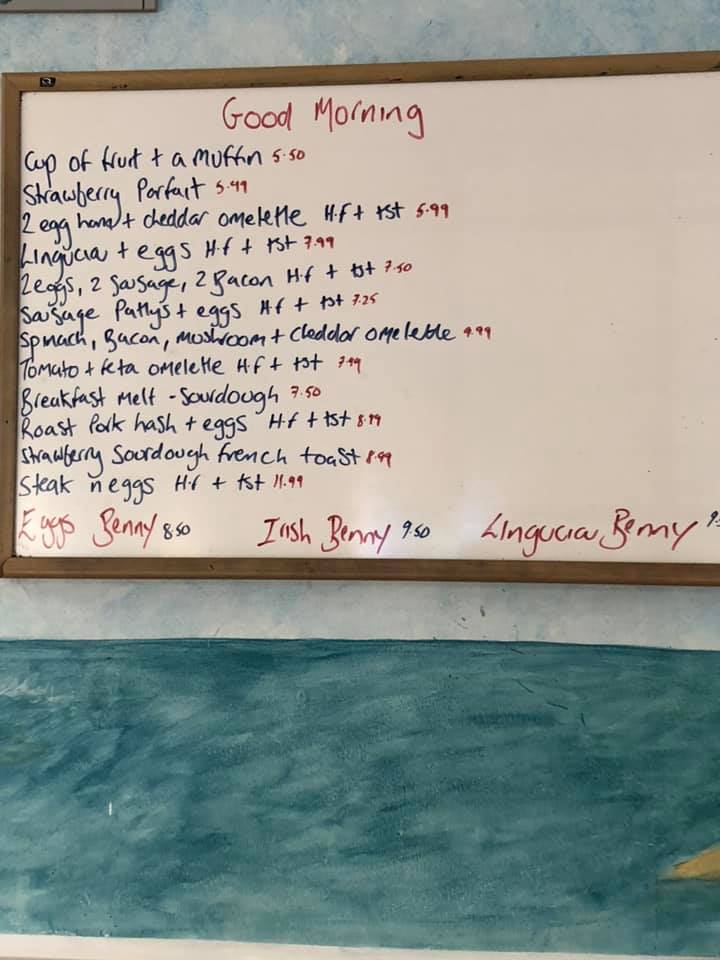 Good Morning
Cup of fruit + a Muffin 5.50
Strawberry Parfait 5.49
2 egg ham + cheddar omelette H.f + tst 5.99
Linguica + eggs H.f + tst 7.99
2 eggs, 2 Sausage, 2 Bacon H.f + tst 7.50
Sausage Pattys + eggs H.f + tst 7.25
Spinach, Bacon, mushroom + Cheddar omelette 9.99
Tomato + feta omelette H.f + tst 7.99
Breakfast melt - Sourdough 7.50
Roast Pork hash + eggs H.f + tst 8.99
Strawberry Sourdough french toast 8.99
Steak n eggs H.f + tst 11.99
Eggs Benny 8.50 Irish Benny 9.50 Linguica Benny